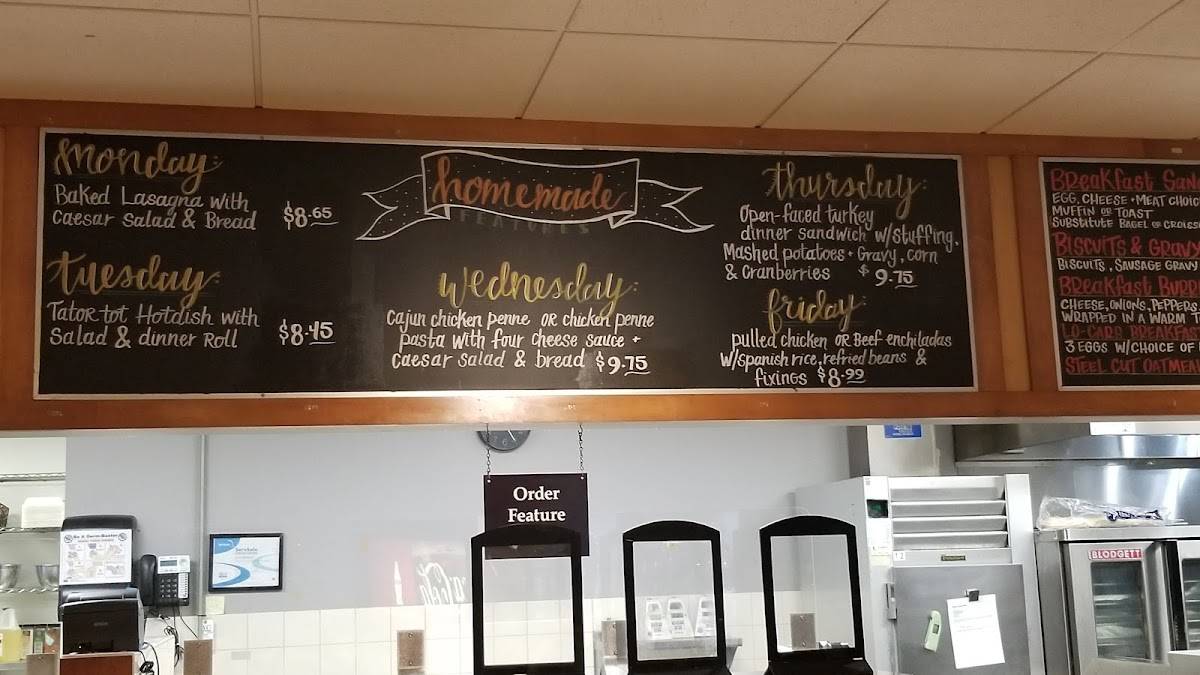 monday:
Baked Lasagna with
Caesar Salad & Bread $8.65
tuesday:
Tator tot Hotdish with
Salad & dinner Roll $8.45
homemade
FEATURES
wednesday:
Cajun chicken penne OR chicken penne
pasta with four cheese sauce +
caesar salad & bread $9.75
thursday:
Open-faced turkey
dinner sandwich w/stuffing.
Mashed potatoes + Gravy, corn
& Cranberries $9.75
friday:
pulled chicken OR Beef enchiladas
w/spanish rice, refried beans &
fixings $8.99
Breakfast San
EGG, CHEESE + MEAT CHOI
MUFFIN OR TOAST
SUBSTITUTE BAGEL OR CROISS
BISCUITS & GRAVY
BISCUITS, SAUSAGE GRAVY
Breakfast Burr
CHEESE, ONIONS, PEPPERS
WRAPPED IN A WARM T
LO-CARB BREAKFAS
3 EGGS W/CHOICE OF
STEEL CUT OATMEAL
Order
Feature
BLODGETT